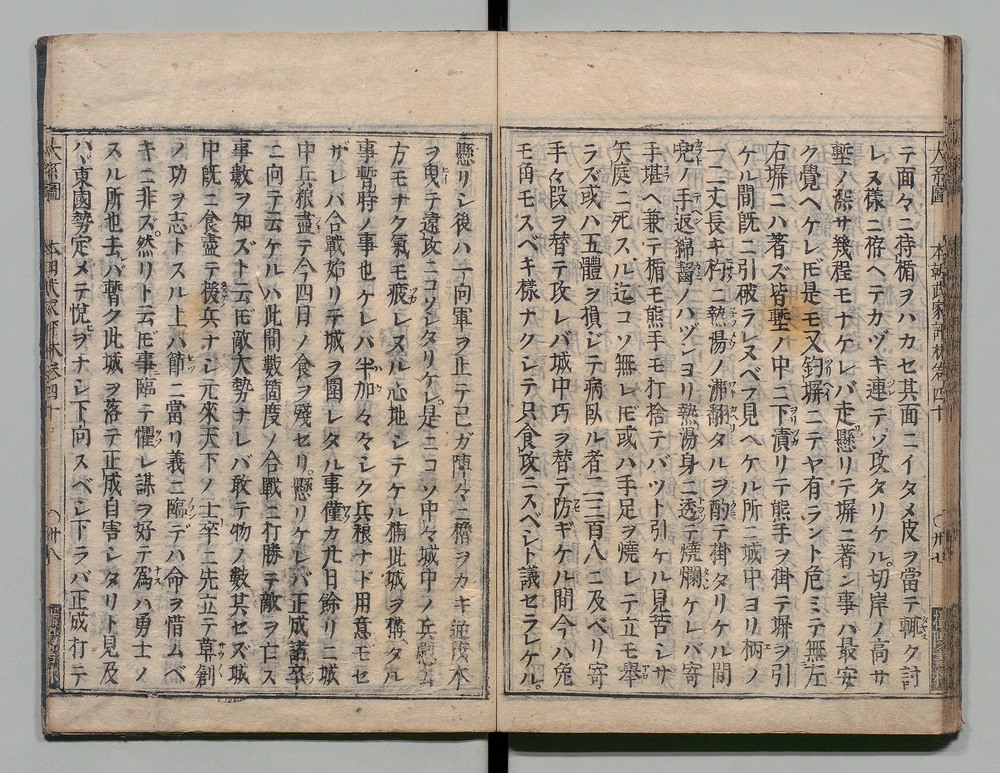 テ面々ニ持楯ヲハカセ其面ニイタメ皮ヲ當テ輙ク討
レヌ様ニ拵ヘテカヅキ連テゾ攻タリケル。切岸ノ高サ
塹ノ深サ幾程モナケレバ走懸リテ塀ニ著ン事ハ最安
ク覺ヘケレ𪜈是モ又釣塀ニテヤ有ラント危ミテ無左
右塀ニハ著ズ皆塹ノ中ニ下漬リテ熊手ヲ掛テ塀ヲ引
ケル間既ニ引破ラレヌベフ見ヘケル所ニ城中ヨリ柄ノ
一二丈長キ杓ニ熱湯ノ沸翻タルヲ酌テ掛タリケル間
兜ノ手返綿齧ノハヅレヨリ熱湯身ニ透テ焼爛ケレバ寄
手堪ヘ兼テ楯モ熊手モ打捨テバツト引ケル見苦シサ
矢庭ニ死スル迄コソ無レ𪜈或ハ手足ヲ燒レテ立モ舉
ラズ或ハ五體ヲ損シテ病臥ル者二三百人ニ及ベリ寄
手々段ヲ替テ攻レバ城中巧ヲ替テ防ギケル間今ハ兔
モ角モスベキ様ナクシテ只食攻ニスベシト議セラレケル。
大系圖 本朝武家評林卷四十 〇卅七
懸リシ後ハ一向軍ヲ止テ己ガ陣々ニ櫓ヲカキ逆茂木
ヲ曳テ遠攻ニコソシタリケレ。是ニコソ中々城中ノ兵慰ム
方モナク氣モ疲レヌル心地シテケル楠此城ヲ構タル
事暫時ノ事也ケレバ半加々々シク兵粮ナド用意モセ
ザレバ合戰始リテ城ヲ圍レタル事僅カ廿日餘リニ城
中兵粮盡テ今四日ノ食ヲ殘セリ。懸リケレバ正成諸卒
ニ向テ云ケルハ此間數箇度ノ合戰ニ打勝テ敵ヲ亡ス
事數ヲ知ズト云𪜈敵大勢ナレバ敢テ物ノ數其セズ城
中既ニ食盡テ援兵ナシ元來天下ノ士卒ニ先立テ草創
ノ功ヲ志トスル上ハ節ニ當リ義ニ臨デハ命ヲ惜ムベ
キニ非ズ。然リト云𪜈事臨テ懼レ謀ヲ好テ爲ハ勇士ノ
スル所也去バ暫ク此城ヲ落テ正成自害シタリト見及
バ東國勢定メテ悅ヲナシ下向スベシ下ラバ正成打テ
大系圖 本朝武家評林卷四十 〇卅八